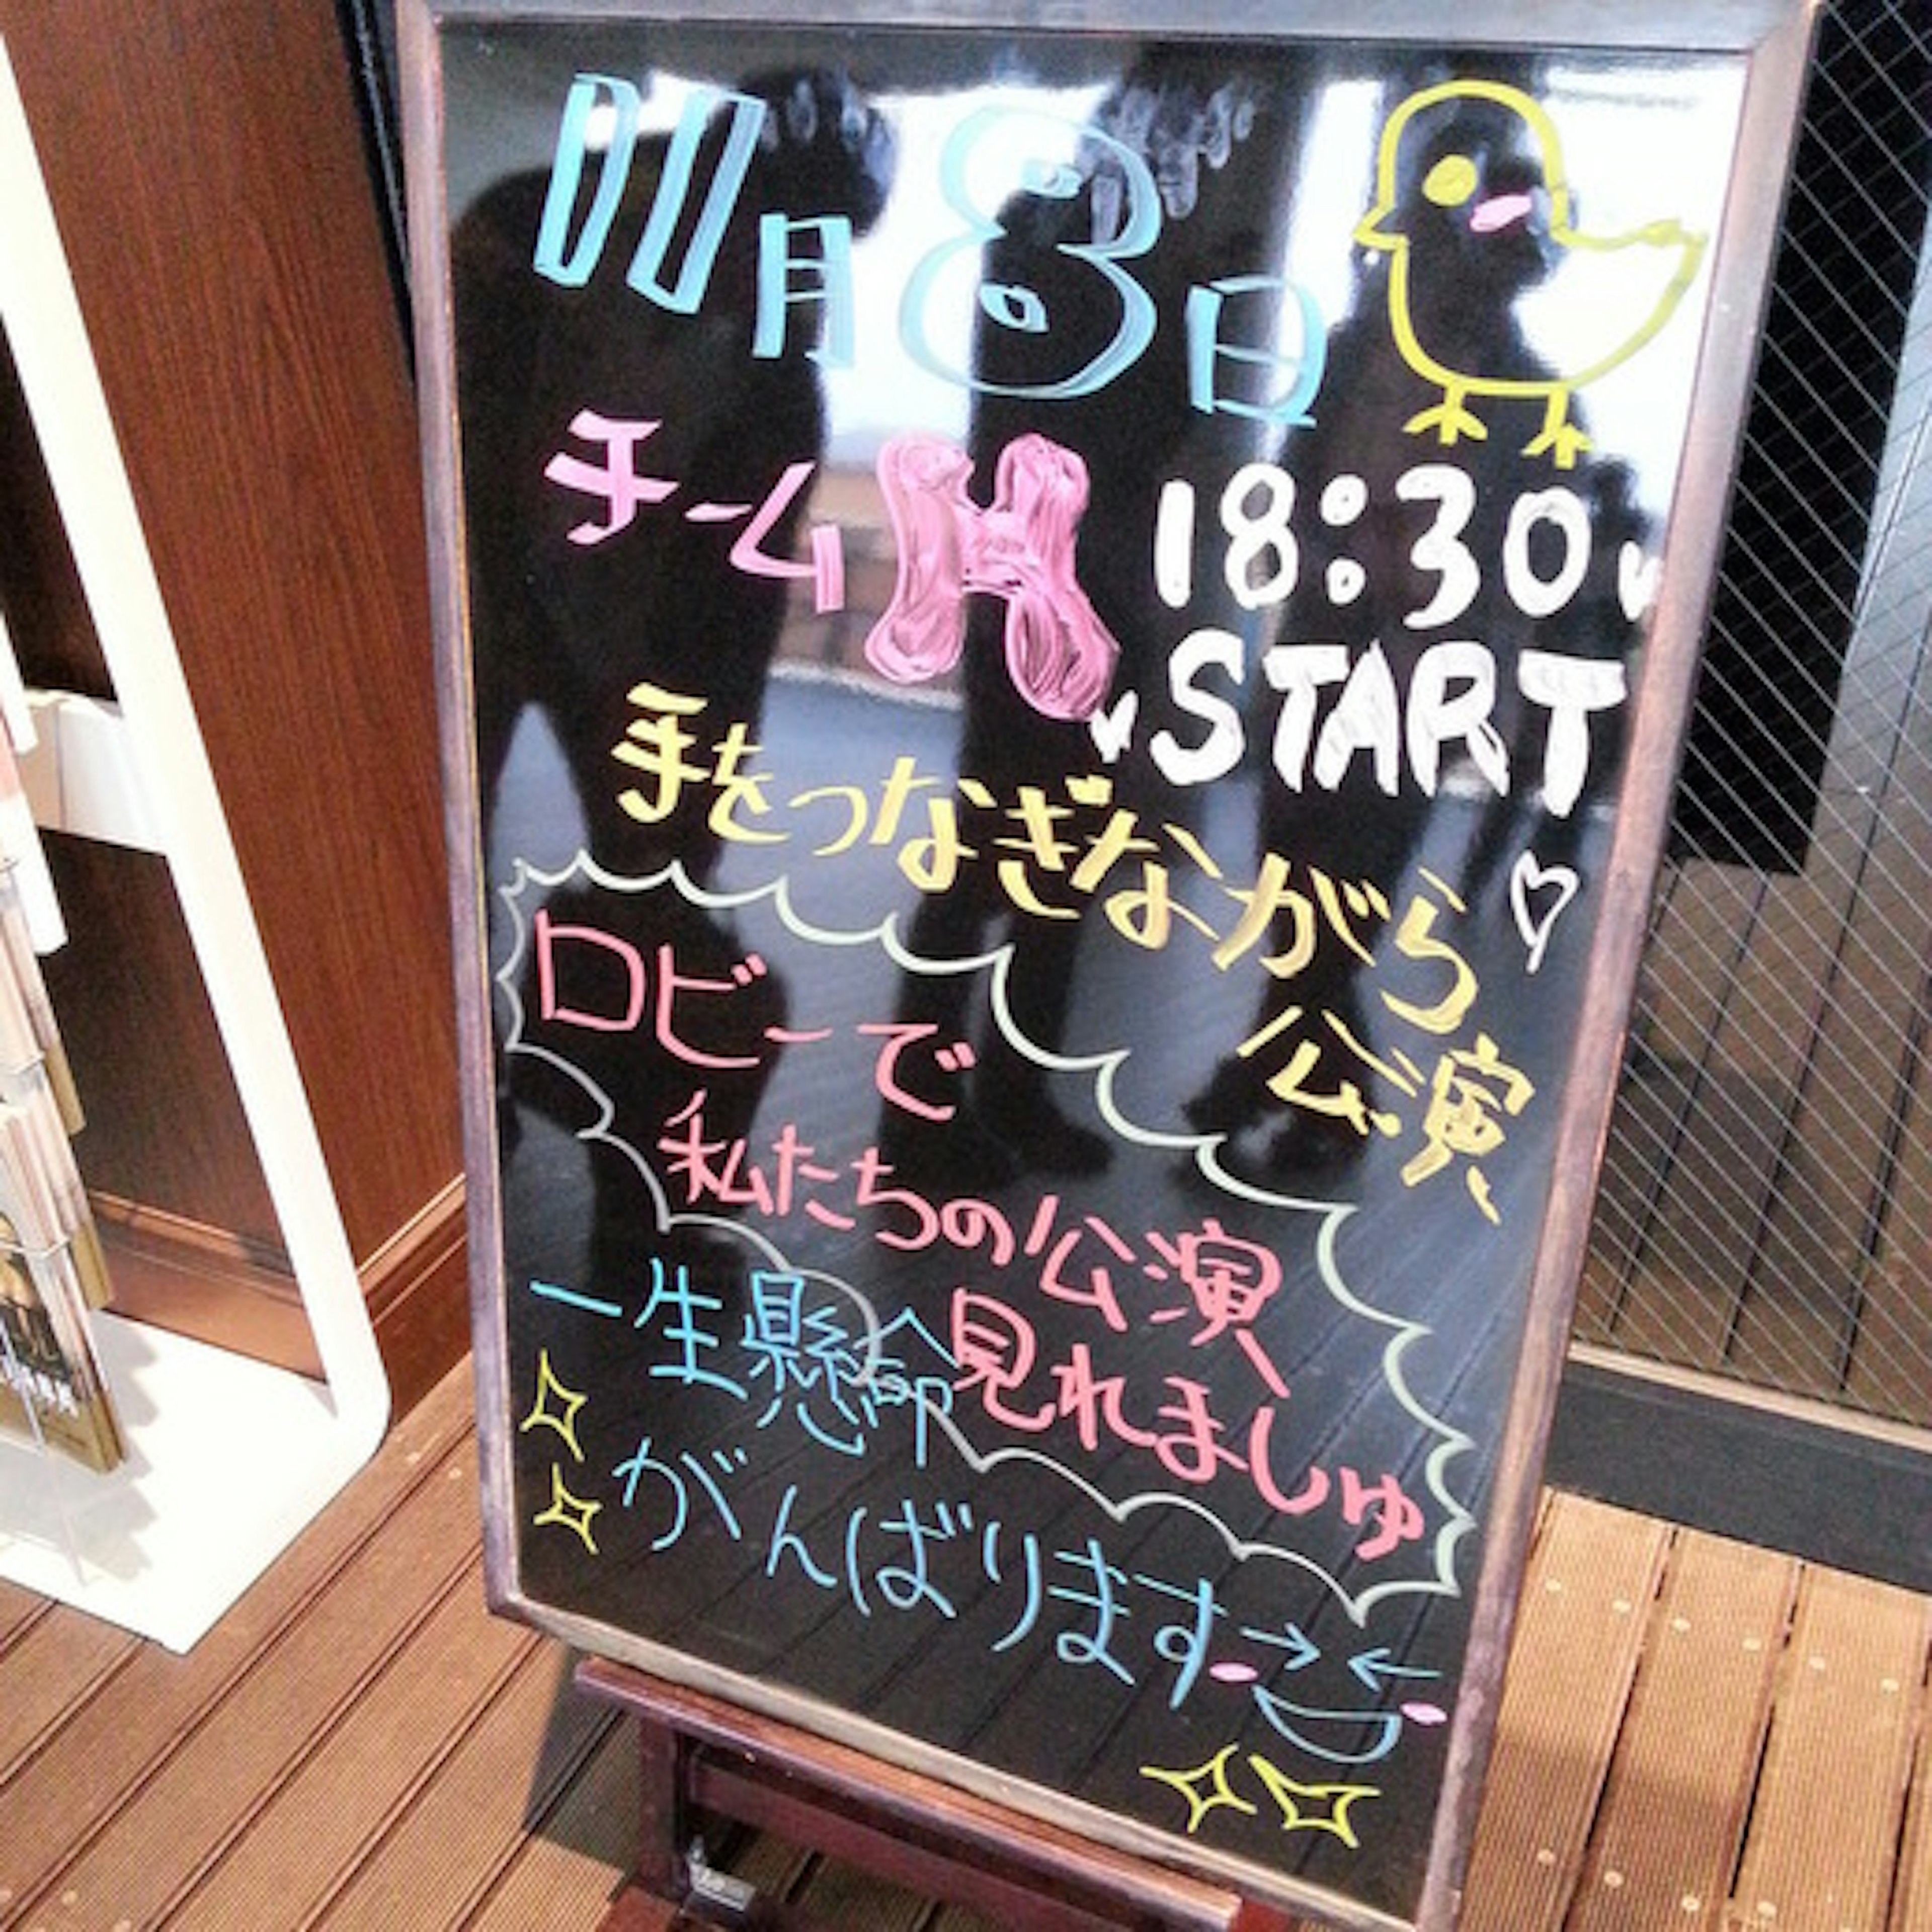 11月8日
チームH 18:30
START
手をつなぎながら
公演
ロビーで
私たちの公演
見れましゅ
一生懸命
がんばります